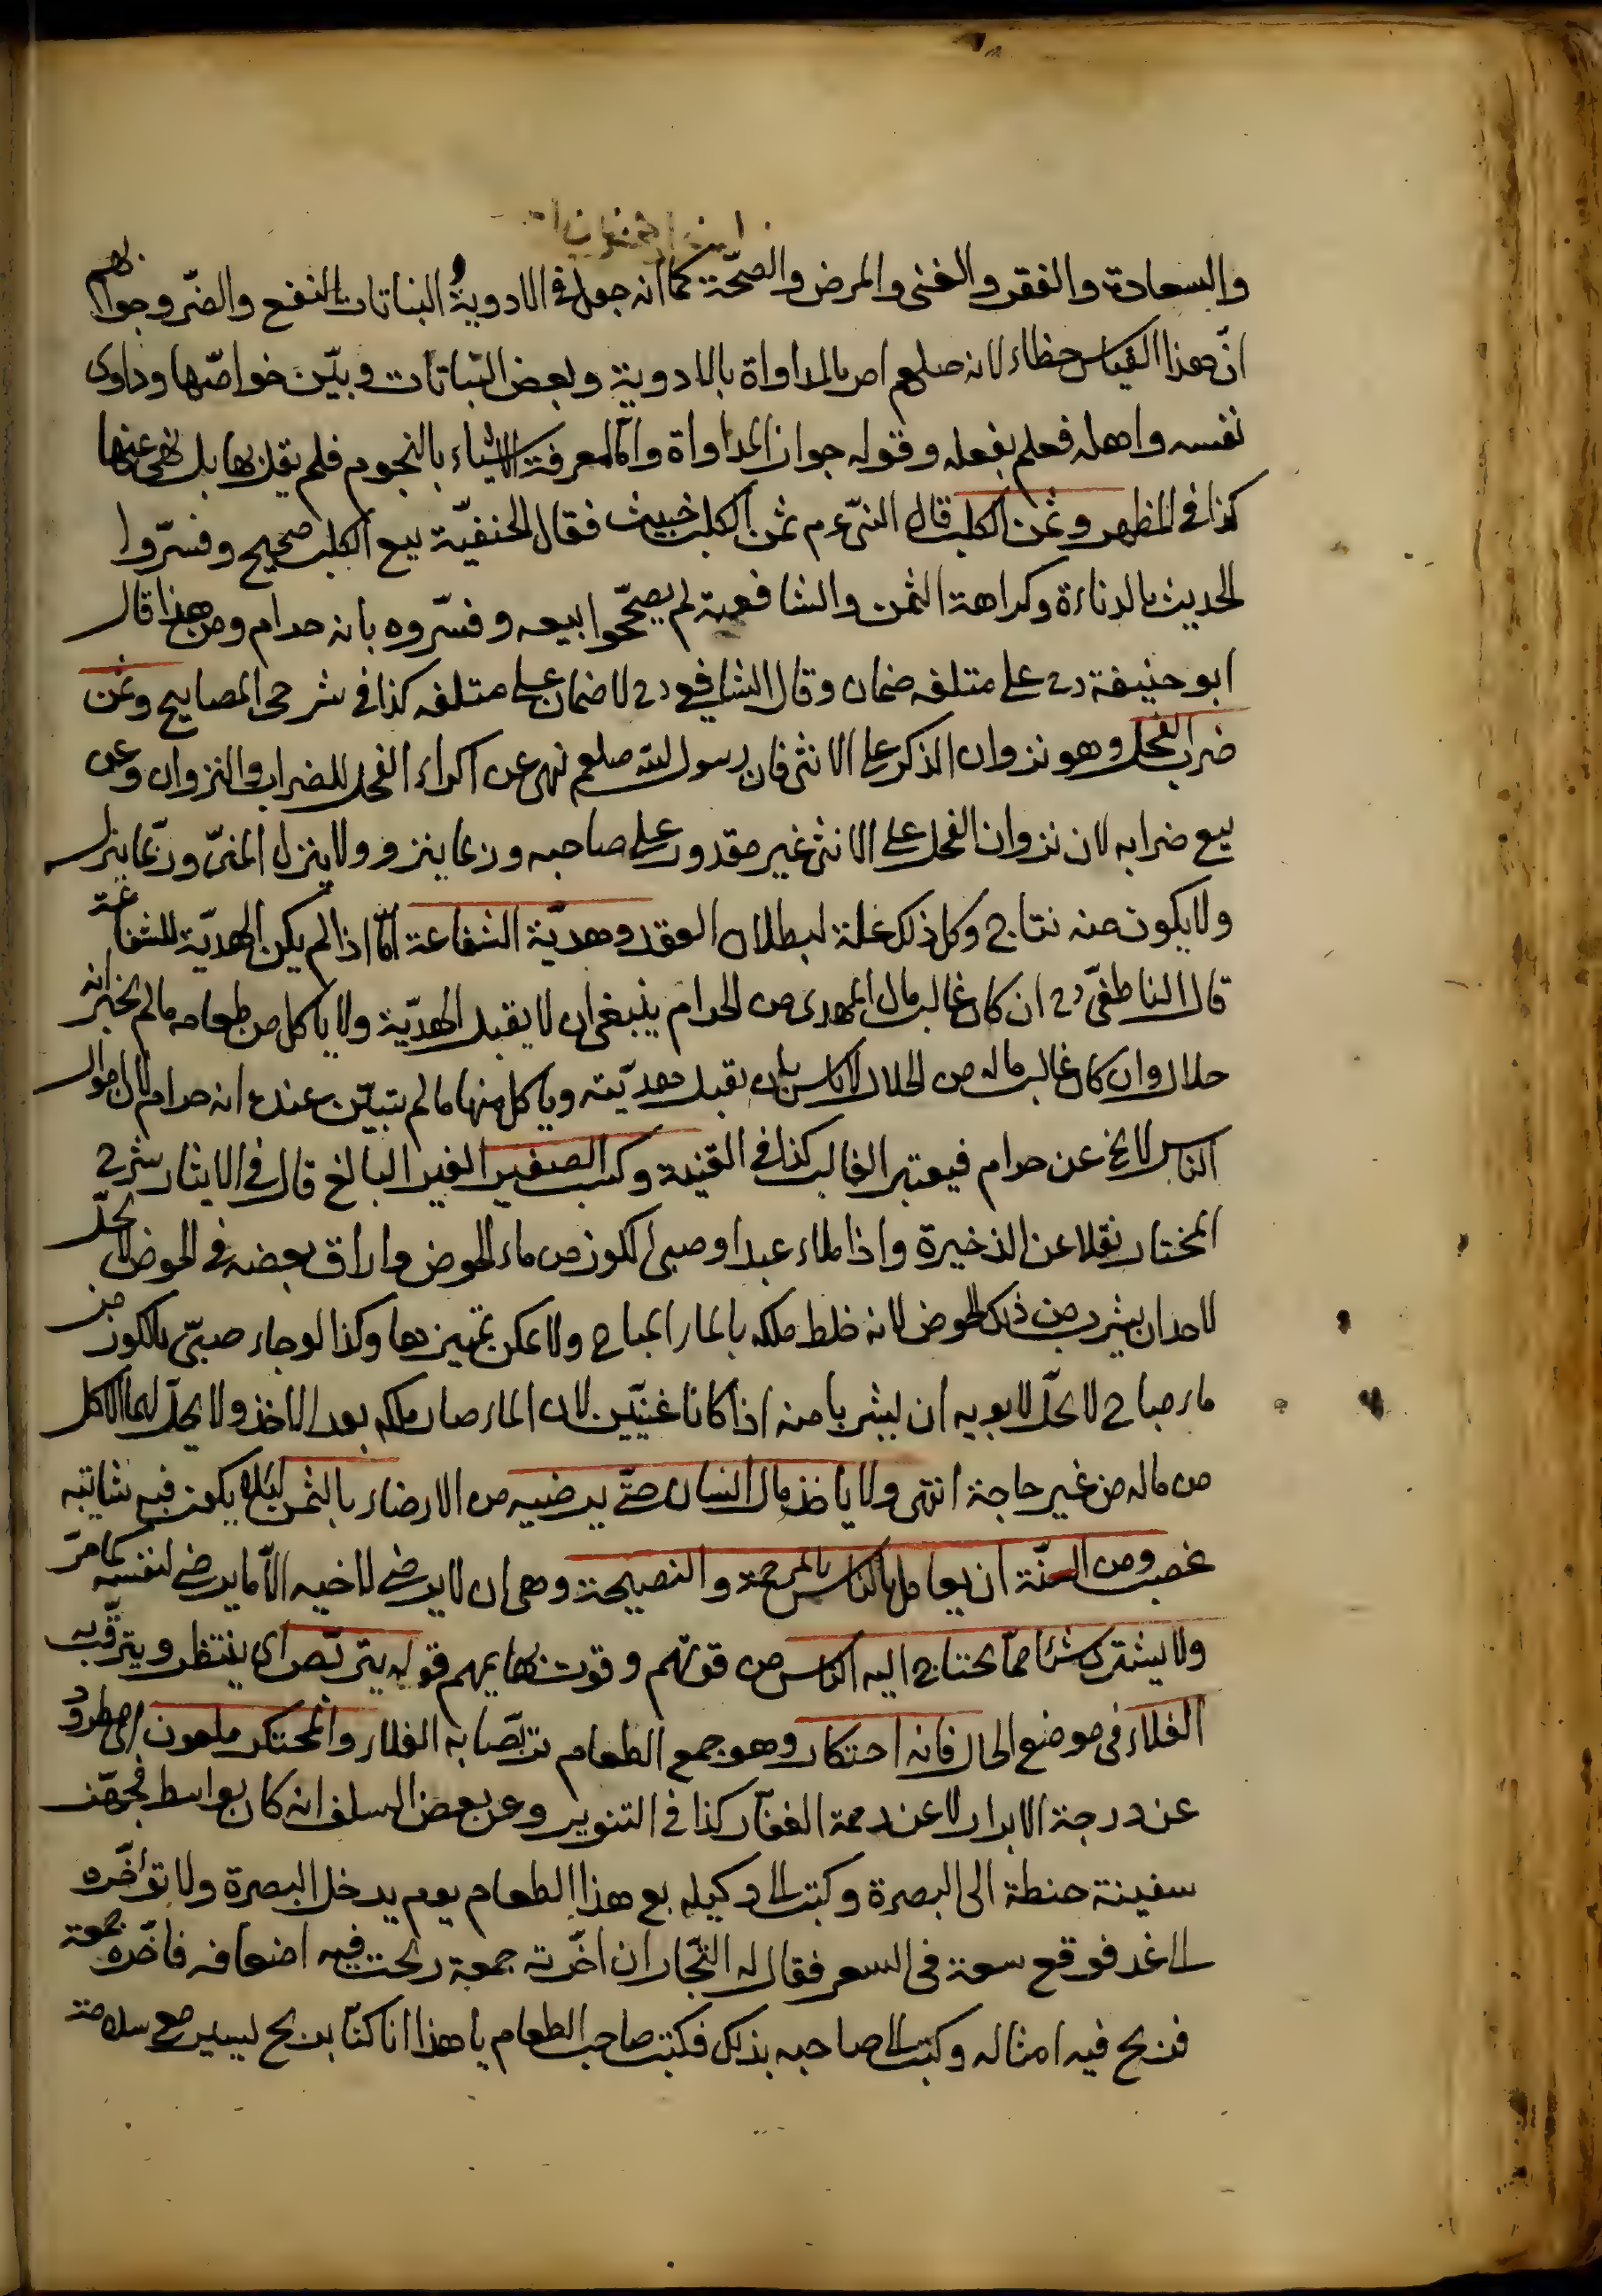 والسعادة والفقر والغنى والمرض والصحّة كما انه جعل فى الادوية و البناتات النفع والضّر وجوابهم
انّ هذا القياس خطاء لانه صلعم امر بالمداواة بالادوية وبعض النباتات وبيّن خواصّها وداوى
نفسه واهله فعلم بفعله وقوله جواز المداواة وامّا معرفة الاشياء بالنجوم فلم يقل بها بل نهى عنها
كذا فى المظهر وثمن الكلب قال النبى عم ثمن الكلب خبيث فقال الحنفيّة بيع الكلب صحيح وفسّروا
الحديث بالدناءة وكراهة الثمن والشافعية لم يصحّحوا بيعه وفسّروه بانه حرام ومن هذا قال
ابو حنيفة رح على متلفه ضمان وقال الشافعى رح لا ضمان على متلفه كذا فى شرحى المصابيح وثمن
ضراب الفحل وهو نزوان الذكر على الانثى فان رسول الله صلعم نهى عن اكراء الفحل للضراب والنزوان وعن
بيع ضرابه لان نزوان الفحل على الانثى غير مقدور على صاحبه وربما ينزو ولا ينزل المنىّ وربّما ينزل
ولا يكون منه نتاج وكل ذلك علة لبطلان العقد وهديّة الشفاعة امّا اذا لم يكن الهديّة للشفاعة
قال الناطفىّ رح ان كان غالب مال المهدى من الحرام ينبغى ان لا يقبل الهديّة ولا ياكل من طعامه مالم يخبر انه
حلال وان كان غالب ماله من الحلال لا باس بان يقبل هديّته وياكل منها مالم يتبيّن عنده انه حرام لان اموال
الناس لا يخ عن حرام فيعتبر الغالب كذا فى القنية وكسب الصغير الغير البالغ قال فى الايثار شرح
المختار نقلا عن الذخيرة واذا ملاء عبد او صبى الكوز من ماء الحوض واراق بعضه فى الحوض لا يحلّ
لاحد ان يشرب من ذلك الحوض لانه خلط ملكه بالماء المباح ولا يمكن تمييزها وكذا لو جاء صبىّ بالكوز من
ماء مباح لا يحلّ لابويه ان يشربا منه اذا كانا غنيّين لان الماء صار ملكه بعد الاخذ ولا يحلّ لهما الاكل
من ماله من غير حاجة انتهى ولا ياخذ مال انسان حتّى يرضيه من الارضاء بالثمن لئلا يكون فيه شائبه
غصب ومن السنّة ان يعامل بالناس بالمرحمة والنصيحة وهى ان لا يرضى لاخيه الاّ ما يرضى لنفسه كما مرّ
ولا يشترى شئا ممّا يحتاج اليه الناس من قوتهم وقوت بهايمهم قوله يتربّص اى ينتظر ويترقّب به
الغلاء فى موضع الحال فانه احتكار وهو جمع الطعام تربّصا به الغلاء والمحتكر ملعون اى مطرود
عن درجة الابرار لا عن رحمة الغفّار كذا فى التنوير وعن بعض السلف انه كان بواسط فجهّز
سفينة حنطة الى البصرة وكتب الى وكيله بع هذا الطعام يوم يدخل البصرة ولا تؤخّره
الى غد فوقع سعة فى السعر فقال له التجّار ان اخّرته جمعة ربحت فيه اضعافه فاخّره جمعة
فربح فيه امثاله وكتب الى صاحبه بذلك فكتب صاحب الطعام يا هذا انا كنّا بربح يسير مع سلامة